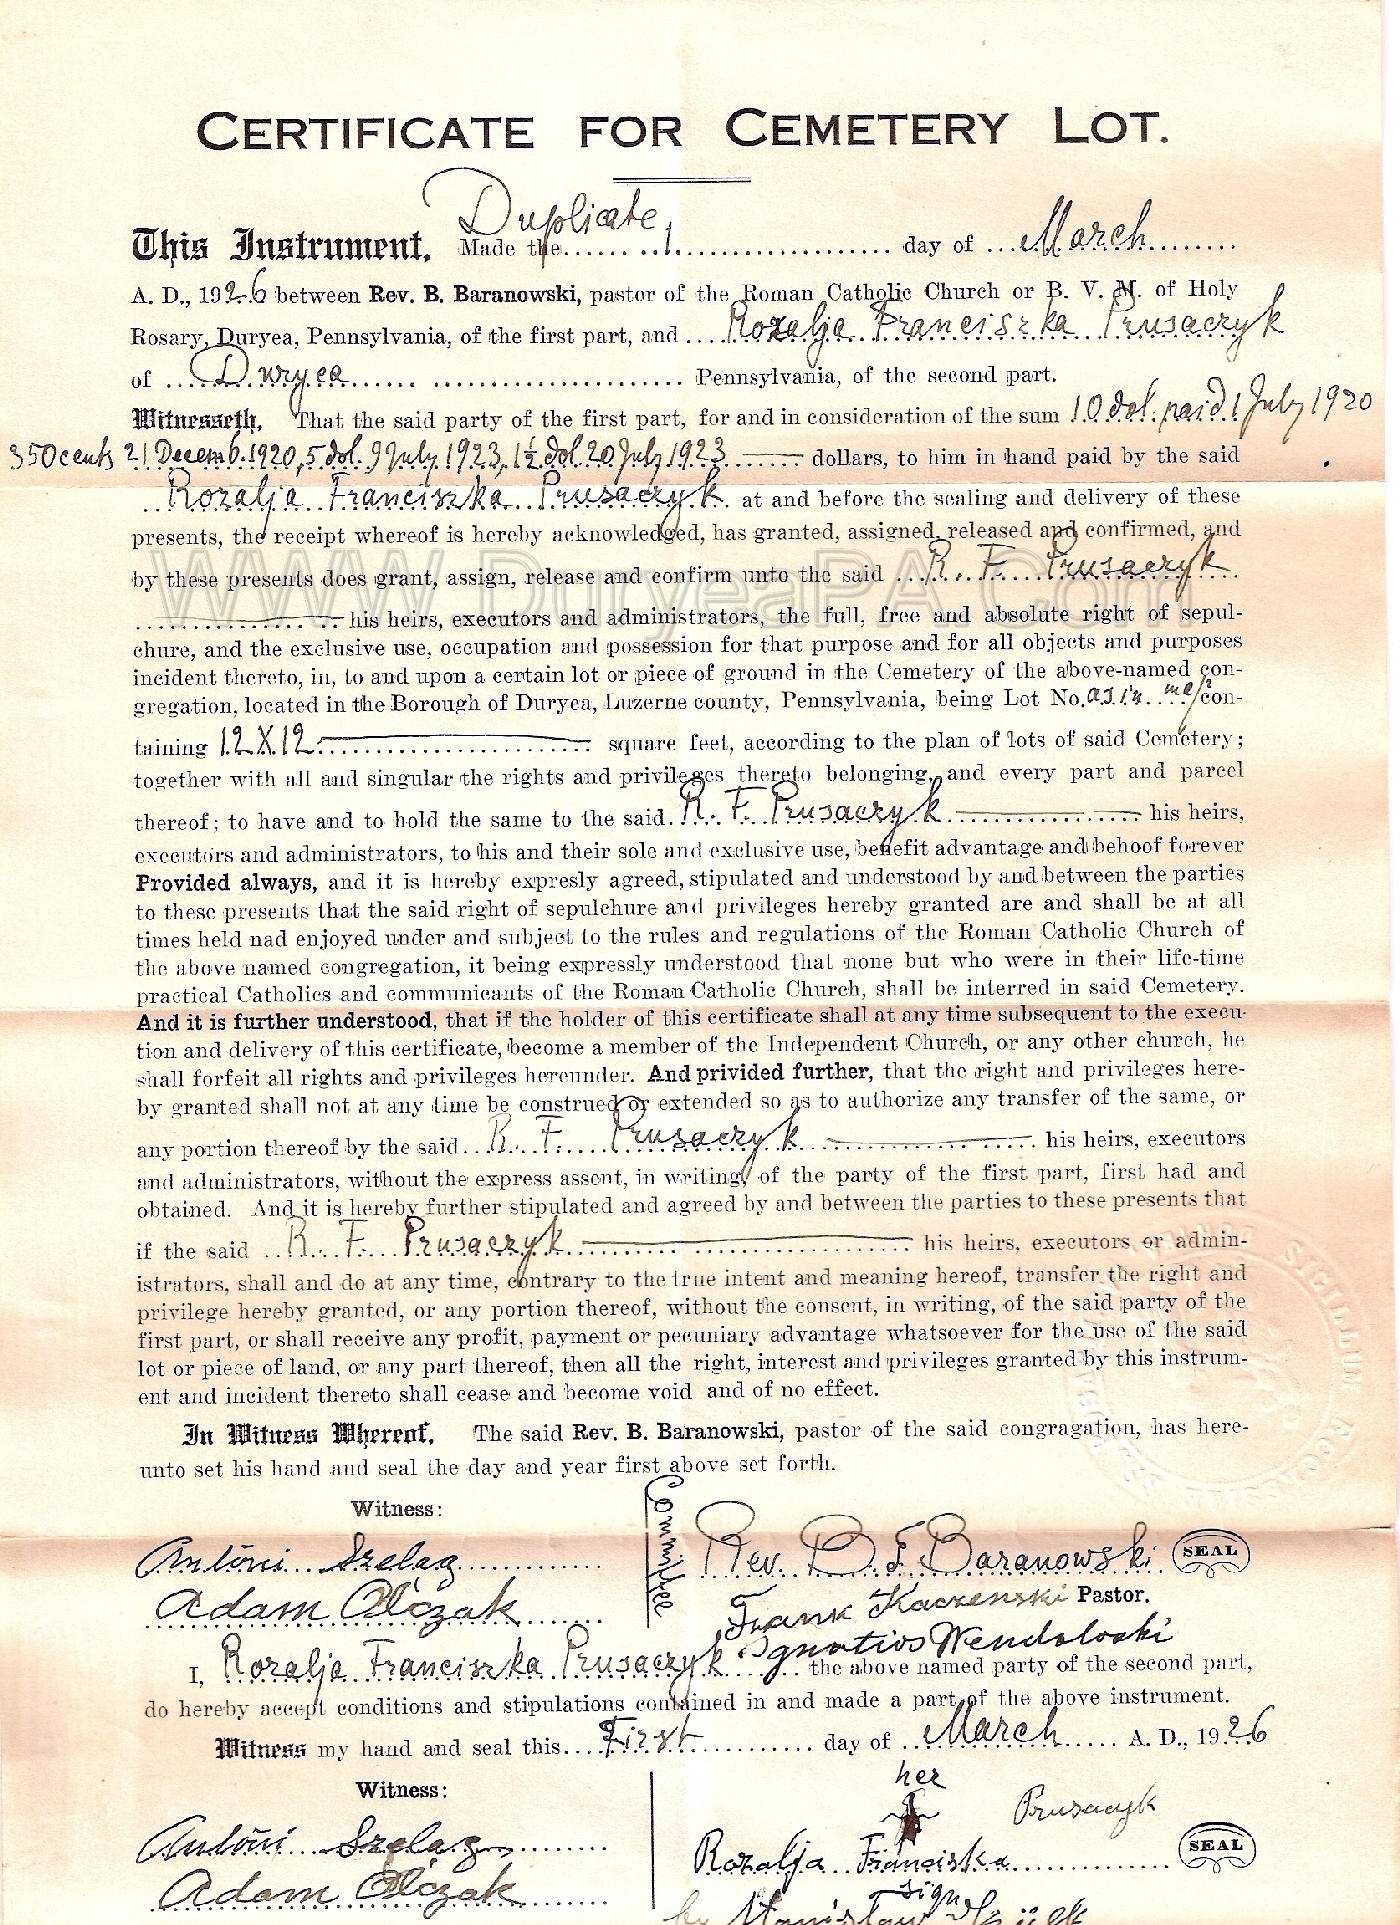 CERTIFICATE FOR CEMETERY LOT.
Duplicate
This Instrument, Made the...... 1 ...................... day of ...March.........
A. D., 1926 between Rev. B. Baranowski, pastor of the Roman Catholic Church or B. V. M. of Holy
Rosary, Duryea, Pennsylvania, of the first part, and .... Rozalja Franciszka Prusaczyk
of ... Duryea...... ...................... Pennsylvania, of the second part.
Witnesseth, That the said party of the first part, for and in consideration of the sum 10 dol. paid 1 July 1920
350 cents 21 Decemb. 1920, 5 dol. 9 July 1923, 1½ dol 20 July 1923 ...... dollars, to him in hand paid by the said
.. Rozalja Franciszka Prusaczyk at and before the sealing and delivery of these
presents, the receipt whereof is hereby acknowledged, has granted, assigned, released and confirmed, and
by these presents does grant, assign, release and confirm unto the said ... R. F. Prusaczyk
WWW.DuryeaPA.Com
.................... his heirs, executors and administrators, the full, free and absolute right of sepul-
chure, and the exclusive use, occupation and possession for that purpose and for all objects and purposes
incident thereto, in, to and upon a certain lot or piece of ground in the Cemetery of the above-named con-
gregation, located in the Borough of Duryea, Luzerne county, Pennsylvania, being Lot No. as in map con-
taining 12 X 12 ........................ square feet, according to the plan of lots of said Cemetery;
together with all and singular the rights and privileges thereto belonging, and every part and parcel
thereof; to have and to hold the same to the said R. F. Prusaczyk .............. his heirs,
executors and administrators, to his and their sole and exclusive use, benefit advantage and behoof forever
Provided always, and it is hereby expresly agreed, stipulated and understood by and between the parties
to these presents that the said right of sepulchure and privileges hereby granted are and shall be at all
times held nad enjoyed under and subject to the rules and regulations of the Roman Catholic Church of
the above named congregation, it being expressly understood that none but who were in their life-time
practical Catholics and communicants of the Roman Catholic Church, shall be interred in said Cemetery.
And it is further understood, that if the holder of this certificate shall at any time subsequent to the execu-
tion and delivery of this certificate, become a member of the Independent Church, or any other church, he
shall forfeit all rights and privileges hereunder. And privided further, that the right and privileges here-
by granted shall not at any time be construed or extended so as to authorize any transfer of the same, or
any portion thereof by the said ... R. F. Prusaczyk .............. his heirs, executors
and administrators, without the express assent, in writing, of the party of the first part, first had and
obtained. And it is hereby further stipulated and agreed by and between the parties to these presents that
if the said ... R. F. Prusaczyk .............................. his heirs, executors or admin-
istrators, shall and do at any time, contrary to the true intent and meaning hereof, transfer the right and
privilege hereby granted, or any portion thereof, without the consent, in writing, of the said party of the
first part, or shall receive any profit, payment or pecuniary advantage whatsoever for the use of the said
lot or piece of land, or any part thereof, then all the right, interest and privileges granted by this instrum-
ent and incident thereto shall cease and become void and of no effect.
In Witness Whereof, The said Rev. B. Baranowski, pastor of the said congragation, has here-
unto set his hand and seal the day and year first above set forth.
Witness:
Committee
Antoni Szelag
Rev. B. F. Baranowski SEAL
Pastor.
Adam Olczak
Frank Kaczenski
Ignatios Wendoloski
I, Rozalja Franciszka Prusaczyk ...... the above named party of the second part,
do hereby accept conditions and stipulations contained in and made a part of the above instrument.
Witness my hand and seal this.... First ............ day of .. March ..... A. D., 1926
Witness:
her
Prusaczyk
Antoni Szelag
Rozalja Franciszka SEAL
Adam Olczak
sign
by Stanislaw